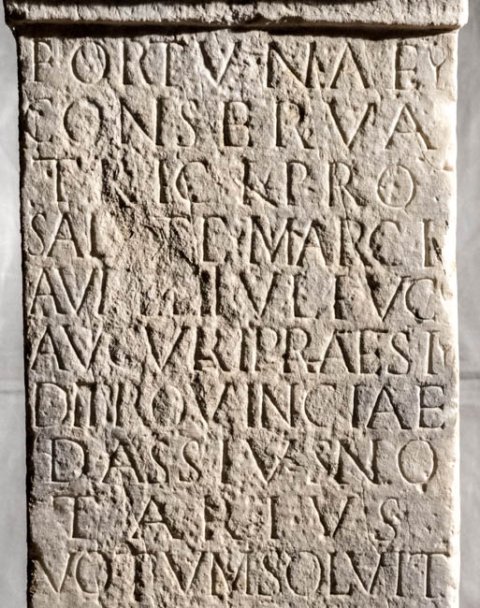 FORTVNAE ET
CONSERVA
TRICI PRO
SALVTE MARCI
AVGVRI PRAESI
DI PROVINCIAE
DASSIVS NO
TARIVS
VOTVM SOLVIT